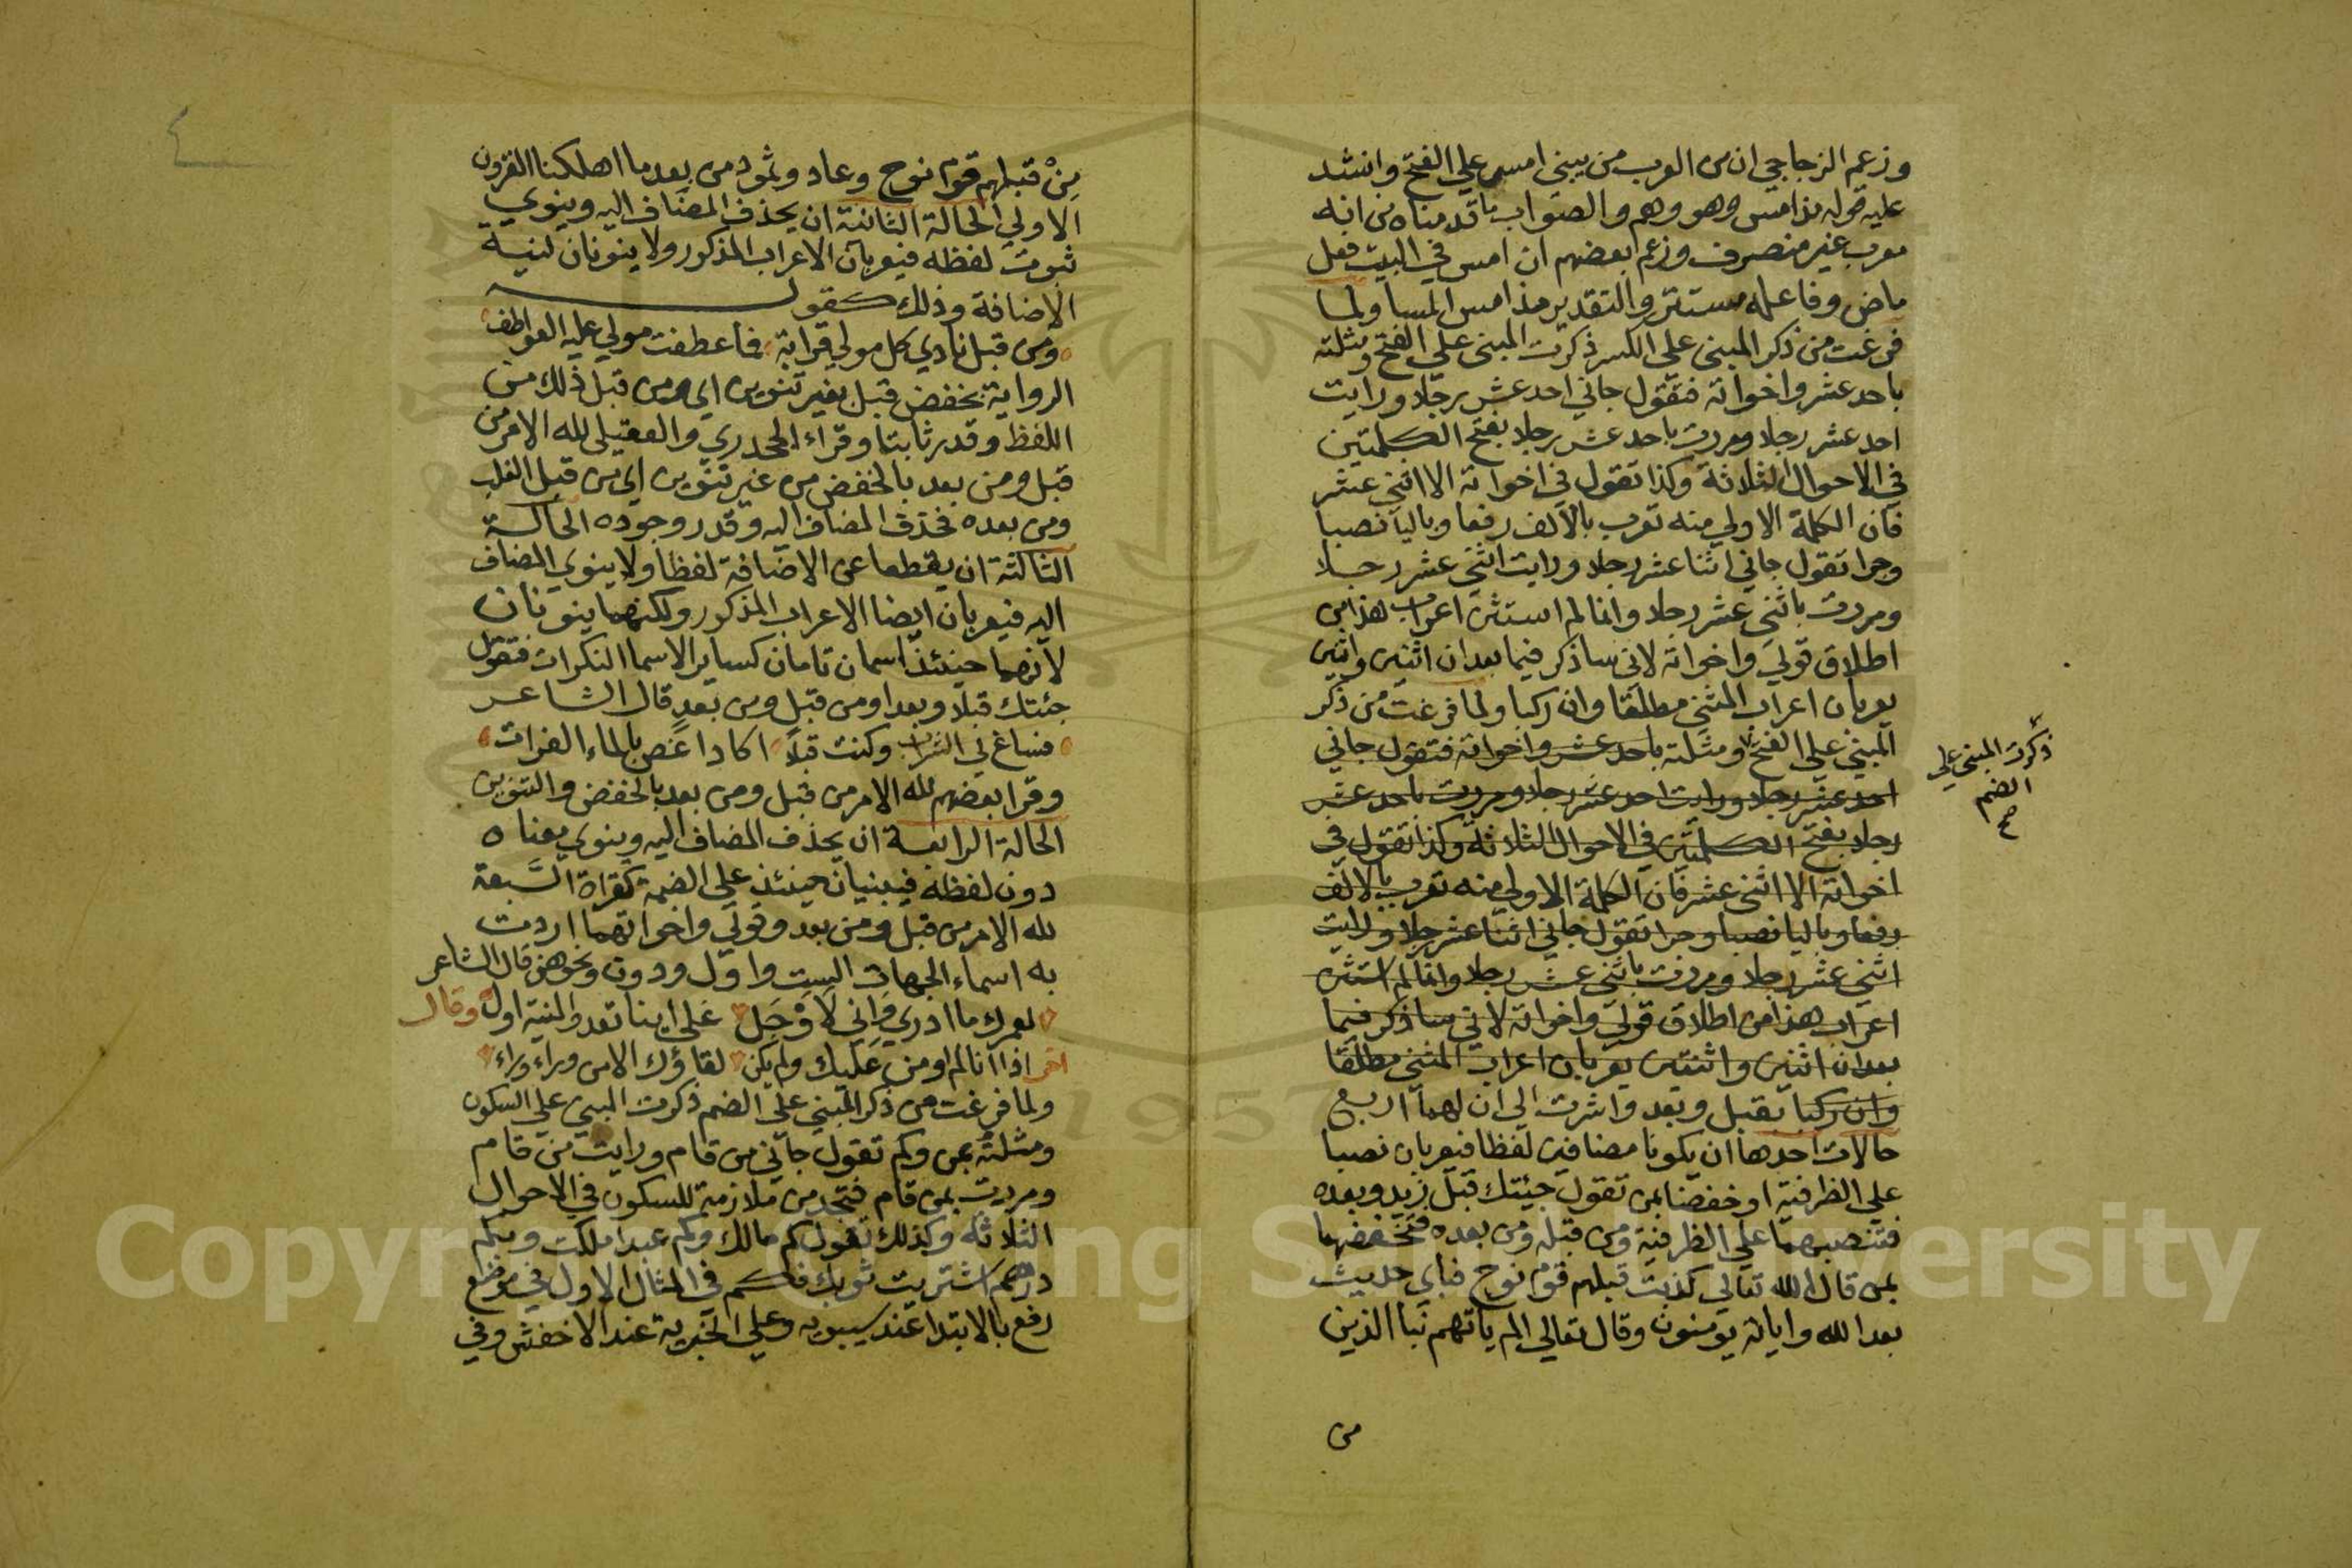 وزعم الزجاجي ان من العرب من يبني امس علي الفتح وانشد
عليه قوله مذ امس وهو وهم والصواب ما قدمناه من انه
معرب غير منصرف وزعم بعضهم ان امس في البيت فعل
ماض وفاعله مستتر والتقدير مذ امس المسا ولما
فرغت من ذكر المبني علي الكسر ذكرت المبني علي الفتح ومثلته
باحد عشر واخواته فتقول جاني احد عشر رجلا ورايت
احد عشر رجلا ومررت باحد عشر رجلا بفتح الكلمتين
في الاحوال الثلاثة وكذا تقول في اخواته الا اثني عشر
فان الكلمة الاولي منه تعرب بالالف رفعا وباليا نصبا
وجرا تقول جاني اثنا عشر رجلا ورايت اثني عشر رجلا
ومررت باثني عشر رجلا وانما لم استثن اعراب هذا من
اطلاق قولي واخواته لاني ساذكر فيما بعد ان اثنين واثنتين
يعربان اعراب المثني مطلقا وان ركبا ولما فرغت من ذكر
المبني علي الفتح ومثلته باحد عشر واخواته فتقول جاني
احد عشر رجلا ورايت احد عشر رجلا ومررت باحد عشر
رجلا بفتح الكلمتين في الاحوال الثلاثة وكذا تقول في
اخواته الا اثني عشر فان الكلمة الاولي منه تعرب بالالف
رفعا وباليا نصبا وجرا تقول جاني اثنا عشر رجلا ورايت
اثني عشر رجلا ومررت باثني عشر رجلا وانما لم استثن
اعراب هذا من اطلاق قولي واخواته لاني ساذكر فيما
بعد ان اثنين واثنتين يعربان اعراب المثني مطلقا
وان ركبا بقبل وبعد واشرت الي ان لهما اربع
حالات احدها ان يكونا مضافين لفظا فيعربان نصبا
علي الظرفية او خفضا بمن تقول جيئتك قبل زيد وبعده
فتنصبهما علي الظرفية ومن قبله ومن بعده فتخفضهما
بمن قال الله تعالي كذبت قبلهم قوم نوح فباي حديث
بعد الله واياته يومنون وقال تعالي الم ياتهم نبا الذين
من
ذكرت المبني علي
الضم
صح
مِنْ قبلهم قوم نوح وعاد وثمود من بعد ما اهلكنا القرون
الاولي الحالة الثانية ان يحذف المضاف اليه وينوي
ثبوت لفظه فيعربان الاعراب المذكور ولا ينونان لنية
الاضافة وذلك كقوله
ومن قبل نادي كل مولي قرابة فما عطفت مولي عليه العواطف
الرواية بخفض قبل بغير تنوين اي ومن قبل ذلك من
اللفظ وقدر ثابتا وقراء الجحدري والعقيلي لله الامر من
قبل ومن بعد بالخفض من غير تنوين اي من قبل الغلب
ومن بعده فحذف المضاف اليه وقدر وجوده الحالة
الثالثة ان يقطعا عن الاضافة لفظا ولا ينوي المضاف
اليه فيعربان ايضا الاعراب المذكور ولكنهما ينونان
لانهما حينئذ اسمان تامان كساير الاسما النكرات فتقول
جئتك قبلا وبعدا ومن قبل ومن بعد قال الشاعر
فساغ لي الشراب وكنت قبلا اكاد اغص بالماء الفرات
وقرا بعضهم لله الامر من قبل ومن بعد بالخفض والتنوين
الحالة الرابعة ان يحذف المضاف اليه وينوي معناه
دون لفظه فيبنيان حينئذ علي الضمة كقراة السبعة
لله الامر من قبل ومن بعد وقولي واخواتهما اردت
به اسماء الجهات الست واول ودون ونحوهن قال الشاعر
لعمرك ما ادري واني لاوجل علي اينا تعدو المنية اول وقال
اخر اذا انا لم اومن عليك ولم يكن لقاؤك الا من وراء وراء
ولما فرغت من ذكر المبني علي الضم ذكرت المبني علي السكون
ومثلته بمن وكم تقول جاني من قام ورايت من قام
ومررت بمن قام فتجد من ملازمة للسكون في الاحوال
الثلاثة وكذلك تقول كم مالك وكم عبدا ملكت وبكم
درهم اشتريت ثوبك فكم في المثال الاول في موضع
رفع بالابتدا عند سيبويه وعلي الخبرية عند الاخفش وفي
1957
Copyright © King Saud University